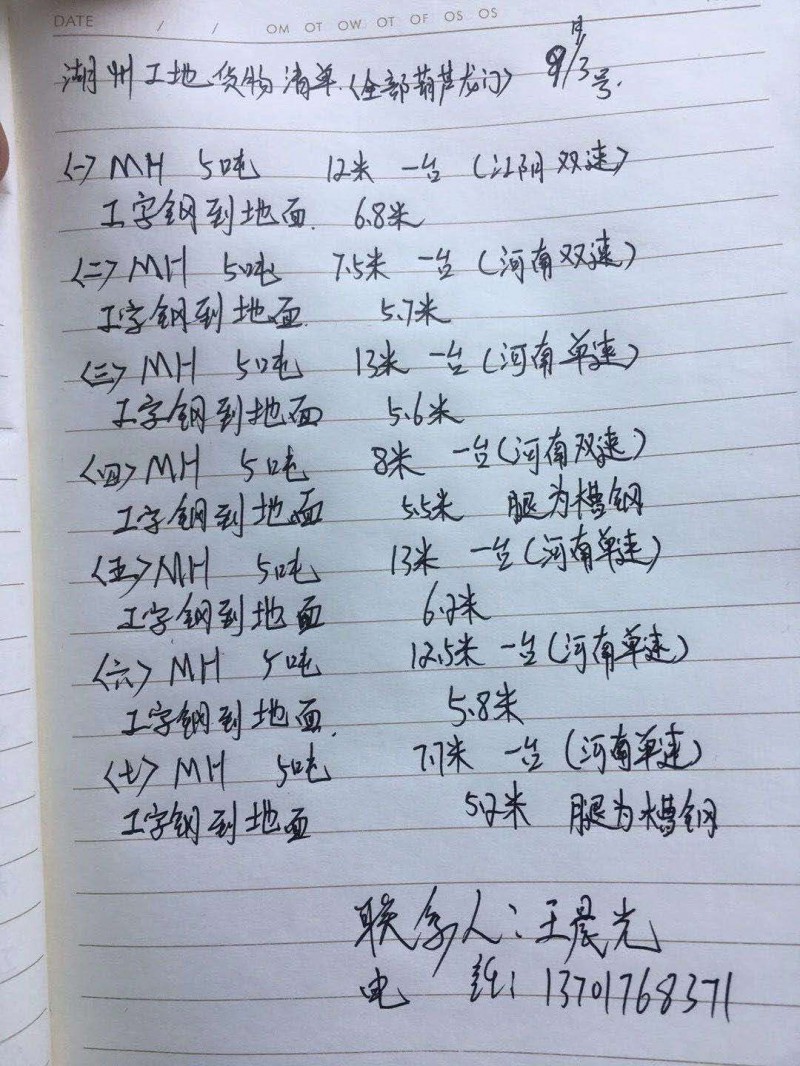 DATE / / OM OT OW OT OF OS OS
湖州工地货物清单.〈全部葫芦龙门〉 9月/3号.
〈一〉MH 5吨 12米 一台(江阴双速〉
工字钢到地面. 6.8米
〈二〉MH 5吨 7.5米 一台(河南双速)
工字钢到地面. 5.7米
〈三〉MH 5吨 13米 一台(河南单速)
工字钢到地面 5.6米
〈四〉MH 5吨 8米 一台(河南双速)
工字钢到地面 5.5米 腿为槽钢
〈五〉MH 5吨 13米 一台(河南单速)
工字钢到地面 6.2米
〈六〉MH 5吨 12.5米 一台(河南单速)
工字钢到地面. 5.8米
〈七〉MH 5吨 7.7米 一台(河南单速)
工字钢到地面 5.2米 腿为槽钢
联系人:王晨光
电 话: 13701768371